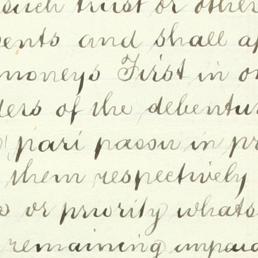 such trust or other
ents and shall ap
moneys First in or
ders of the debentur
pari passu in pr
them respectively
or priority whats
remaining unpaid